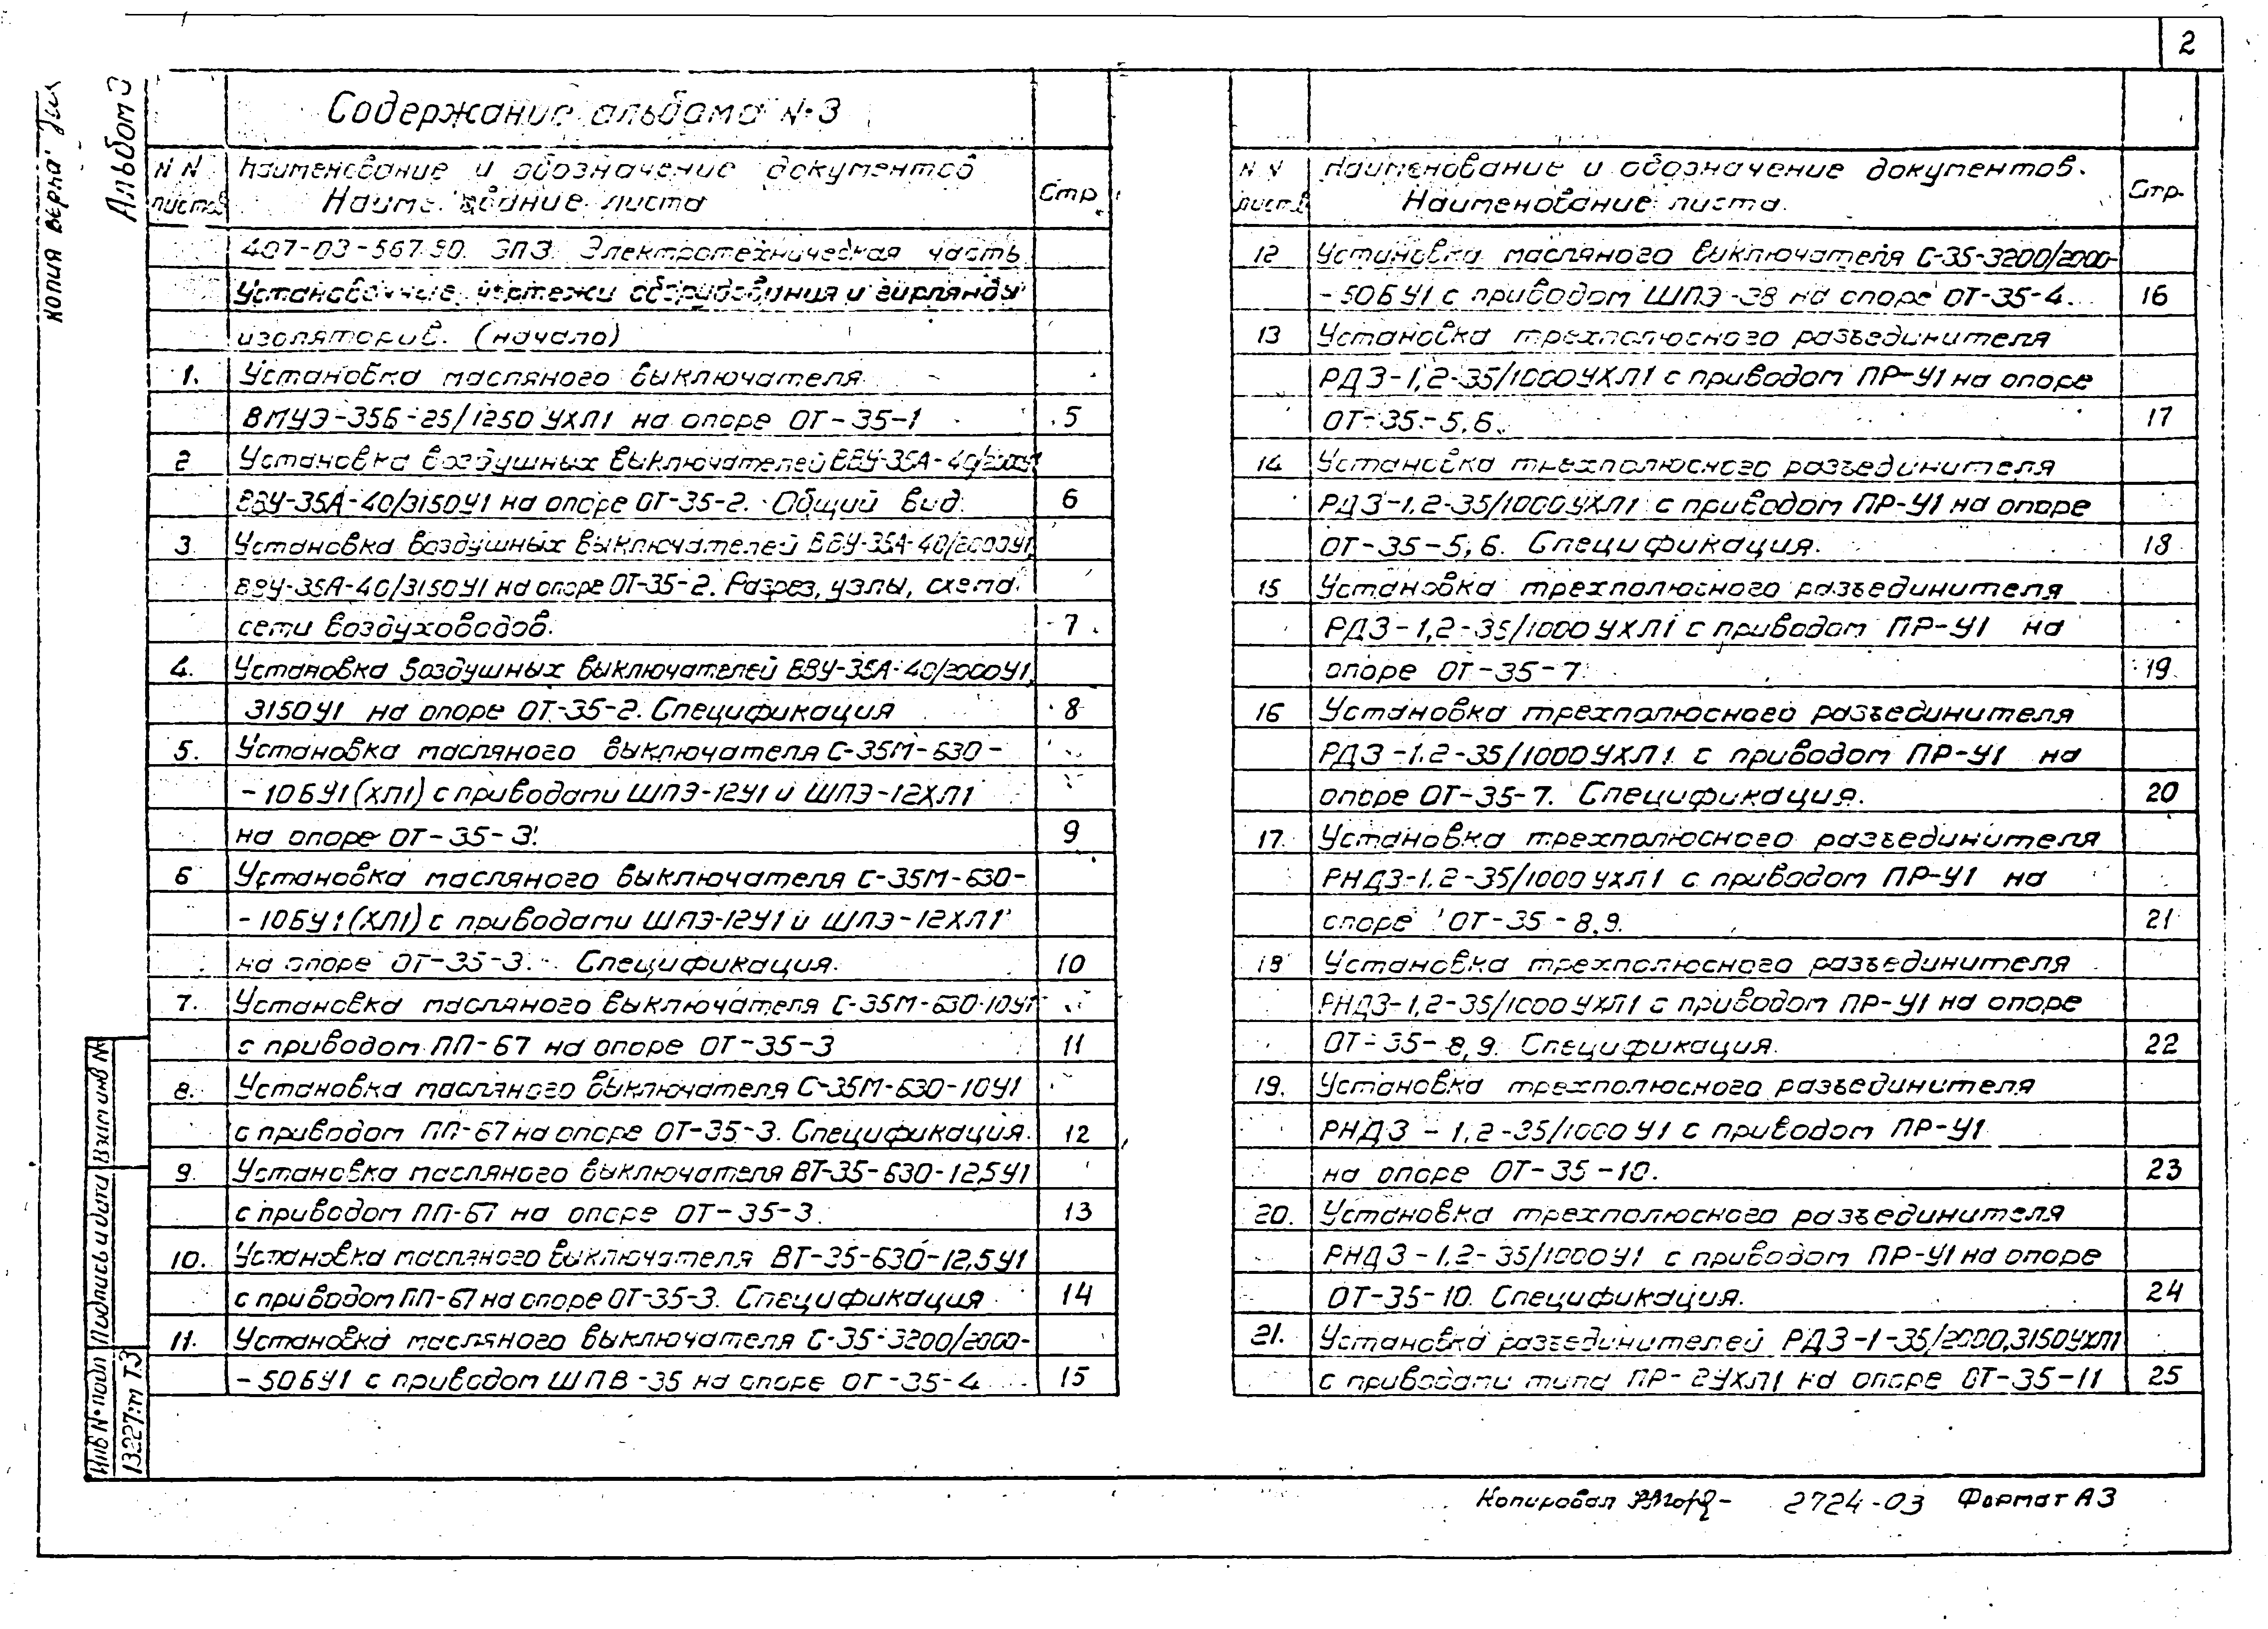 2
Копия верна
Альбом 3
Содержание альбома №3
NN листов
Наименование и обозначение документов
Наименование листа
Стр.
407-03-567.90. ЭП3. Электротехническая часть
Установочные чертежи оборудования и гирлянды
изоляторов. (начало)
1. Установка масляного выключателя
ВМУЭ-35Б-25/1250 УХЛ1 на опоре ОТ-35-1 5
2 Установка воздушных выключателей ВВУ-35А-40/2000У1
ВВУ-35А-40/3150У1 на опоре ОТ-35-2. Общий вид. 6
3 Установка воздушных выключателей ВВУ-35А-40/2000У1,
ВВУ-35А-40/3150У1 на опоре ОТ-35-2. Разрез, узлы, схема
сети воздуховодов. 7
4. Установка воздушных выключателей ВВУ-35А-40/2000У1,
3150У1 на опоре ОТ-35-2. Спецификация 8
5. Установка масляного выключателя С-35М-630-
-10БУ1(ХЛ1) с приводами ШПЭ-12У1 и ШПЭ-12ХЛ1
на опоре ОТ-35-3. 9
6 Установка масляного выключателя С-35М-630-
-10БУ1(ХЛ1) с приводами ШПЭ-12У1 и ШПЭ-12ХЛ1
на опоре ОТ-35-3. Спецификация. 10
7. Установка масляного выключателя С-35М-630-10У1
с приводом ПП-67 на опоре ОТ-35-3 11
8. Установка масляного выключателя С-35М-630-10У1
с приводом ПП-67 на опоре ОТ-35-3. Спецификация. 12
9. Установка масляного выключателя ВТ-35-630-12,5У1
с приводом ПП-67 на опоре ОТ-35-3. 13
10. Установка масляного выключателя ВТ-35-630-12,5У1
с приводом ПП-67 на опоре ОТ-35-3. Спецификация 14
11. Установка масляного выключателя С-35-3200/2000-
-50БУ1 с приводом ШПВ-35 на опоре ОТ-35-4 15
NN листов
Наименование и обозначение документов.
Наименование листа.
Стр.
12 Установка масляного выключателя С-35-3200/2000-
-50БУ1 с приводом ШПЭ-38 на опоре ОТ-35-4. 16
13 Установка трехполюсного разъединителя
РДЗ-1,2-35/1000УХЛ1 с приводом ПР-У1 на опоре
ОТ-35-5,6. 17
14 Установка трехполюсного разъединителя
РДЗ-1,2-35/1000УХЛ1 с приводом ПР-У1 на опоре
ОТ-35-5,6. Спецификация. 18
15 Установка трехполюсного разъединителя
РДЗ-1,2-35/1000УХЛ1 с приводом ПР-У1 на
опоре ОТ-35-7. 19
16 Установка трехполюсного разъединителя
РДЗ-1,2-35/1000УХЛ1 с приводом ПР-У1 на
опоре ОТ-35-7. Спецификация. 20
17. Установка трехполюсного разъединителя
РНДЗ-1,2-35/1000УХЛ1 с приводом ПР-У1 на
опоре ОТ-35-8,9. 21
18 Установка трехполюсного разъединителя
РНДЗ-1,2-35/1000УХЛ1 с приводом ПР-У1 на опоре
ОТ-35-8,9. Спецификация. 22
19. Установка трехполюсного разъединителя
РНДЗ-1,2-35/1000У1 с приводом ПР-У1
на опоре ОТ-35-10. 23
20. Установка трехполюсного разъединителя
РНДЗ-1,2-35/1000У1 с приводом ПР-У1 на опоре
ОТ-35-10. Спецификация. 24
21. Установка разъединителей РДЗ-1-35/2000,3150УХЛ1
с приводами типа ПР-2УХЛ1 на опоре ОТ-35-11 25
Взам инв №
Подпись и дата
Инв № подл
13227тм Т3
Копировал 2724-03 Формат А3